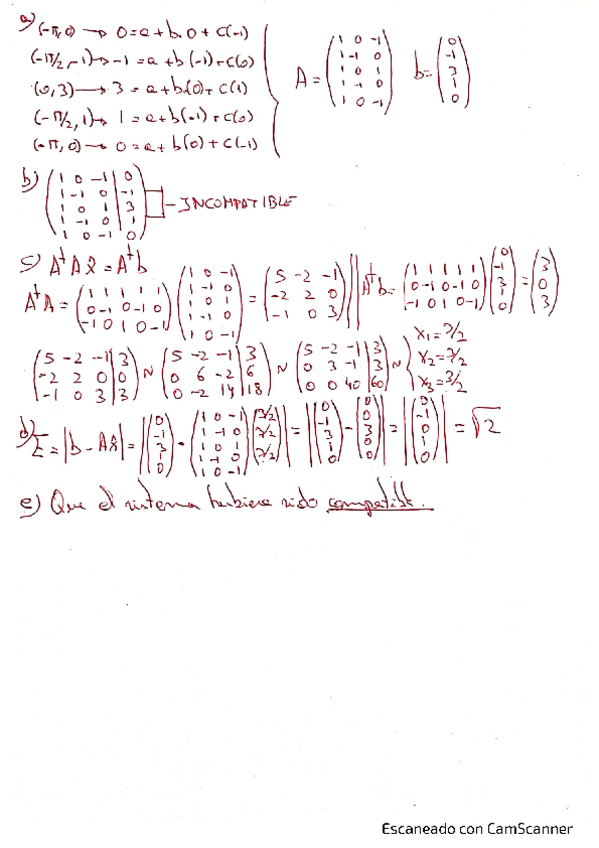 a) (-π, 0) → 0 = a + b·0 + c(-1)
(-π/2, -1) → -1 = a + b(-1) + c(0)
(0, 3) → 3 = a + b(0) + c(1)
(-π/2, 1) → 1 = a + b(-1) + c(0)
(-π, 0) → 0 = a + b(0) + c(-1)
A = (1 0 -1; 1 -1 0; 1 0 1; 1 -1 0; 1 0 -1) b = (0; -1; 3; 1; 0)
b) (1 0 -1 | 0; 1 -1 0 | -1; 1 0 1 | 3; 1 -1 0 | 1; 1 0 -1 | 0) - INCOMPATIBLE
c) AᵗAx̂ = Aᵗb
AᵗA = (1 1 1 1 1; 0 -1 0 -1 0; -1 0 1 0 -1) (1 0 -1; 1 -1 0; 1 0 1; 1 -1 0; 1 0 -1) = (5 -2 -1; -2 2 0; -1 0 3) || Aᵗb = (1 1 1 1 1; 0 -1 0 -1 0; -1 0 1 0 -1) (0; -1; 3; 1; 0) = (3; 0; 3)
(5 -2 -1 | 3; -2 2 0 | 0; -1 0 3 | 3) ~ (5 -2 -1 | 3; 0 6 -2 | 6; 0 -2 14 | 18) ~ (5 -2 -1 | 3; 0 3 -1 | 3; 0 0 40 | 60) ~ { x₁ = 3/2 x₂ = 3/2 x₃ = 3/2
d) E = |b - Ax̂| = |(0; -1; 3; 1; 0) - (1 0 -1; 1 -1 0; 1 0 1; 1 -1 0; 1 0 -1) (3/2; 3/2; 3/2)| = |(0; -1; 3; 1; 0) - (0; 0; 3; 0; 0)| = |(0; -1; 0; 1; 0)| = √2
e) Que el sistema hubiera sido compatible.
Escaneado con CamScanner